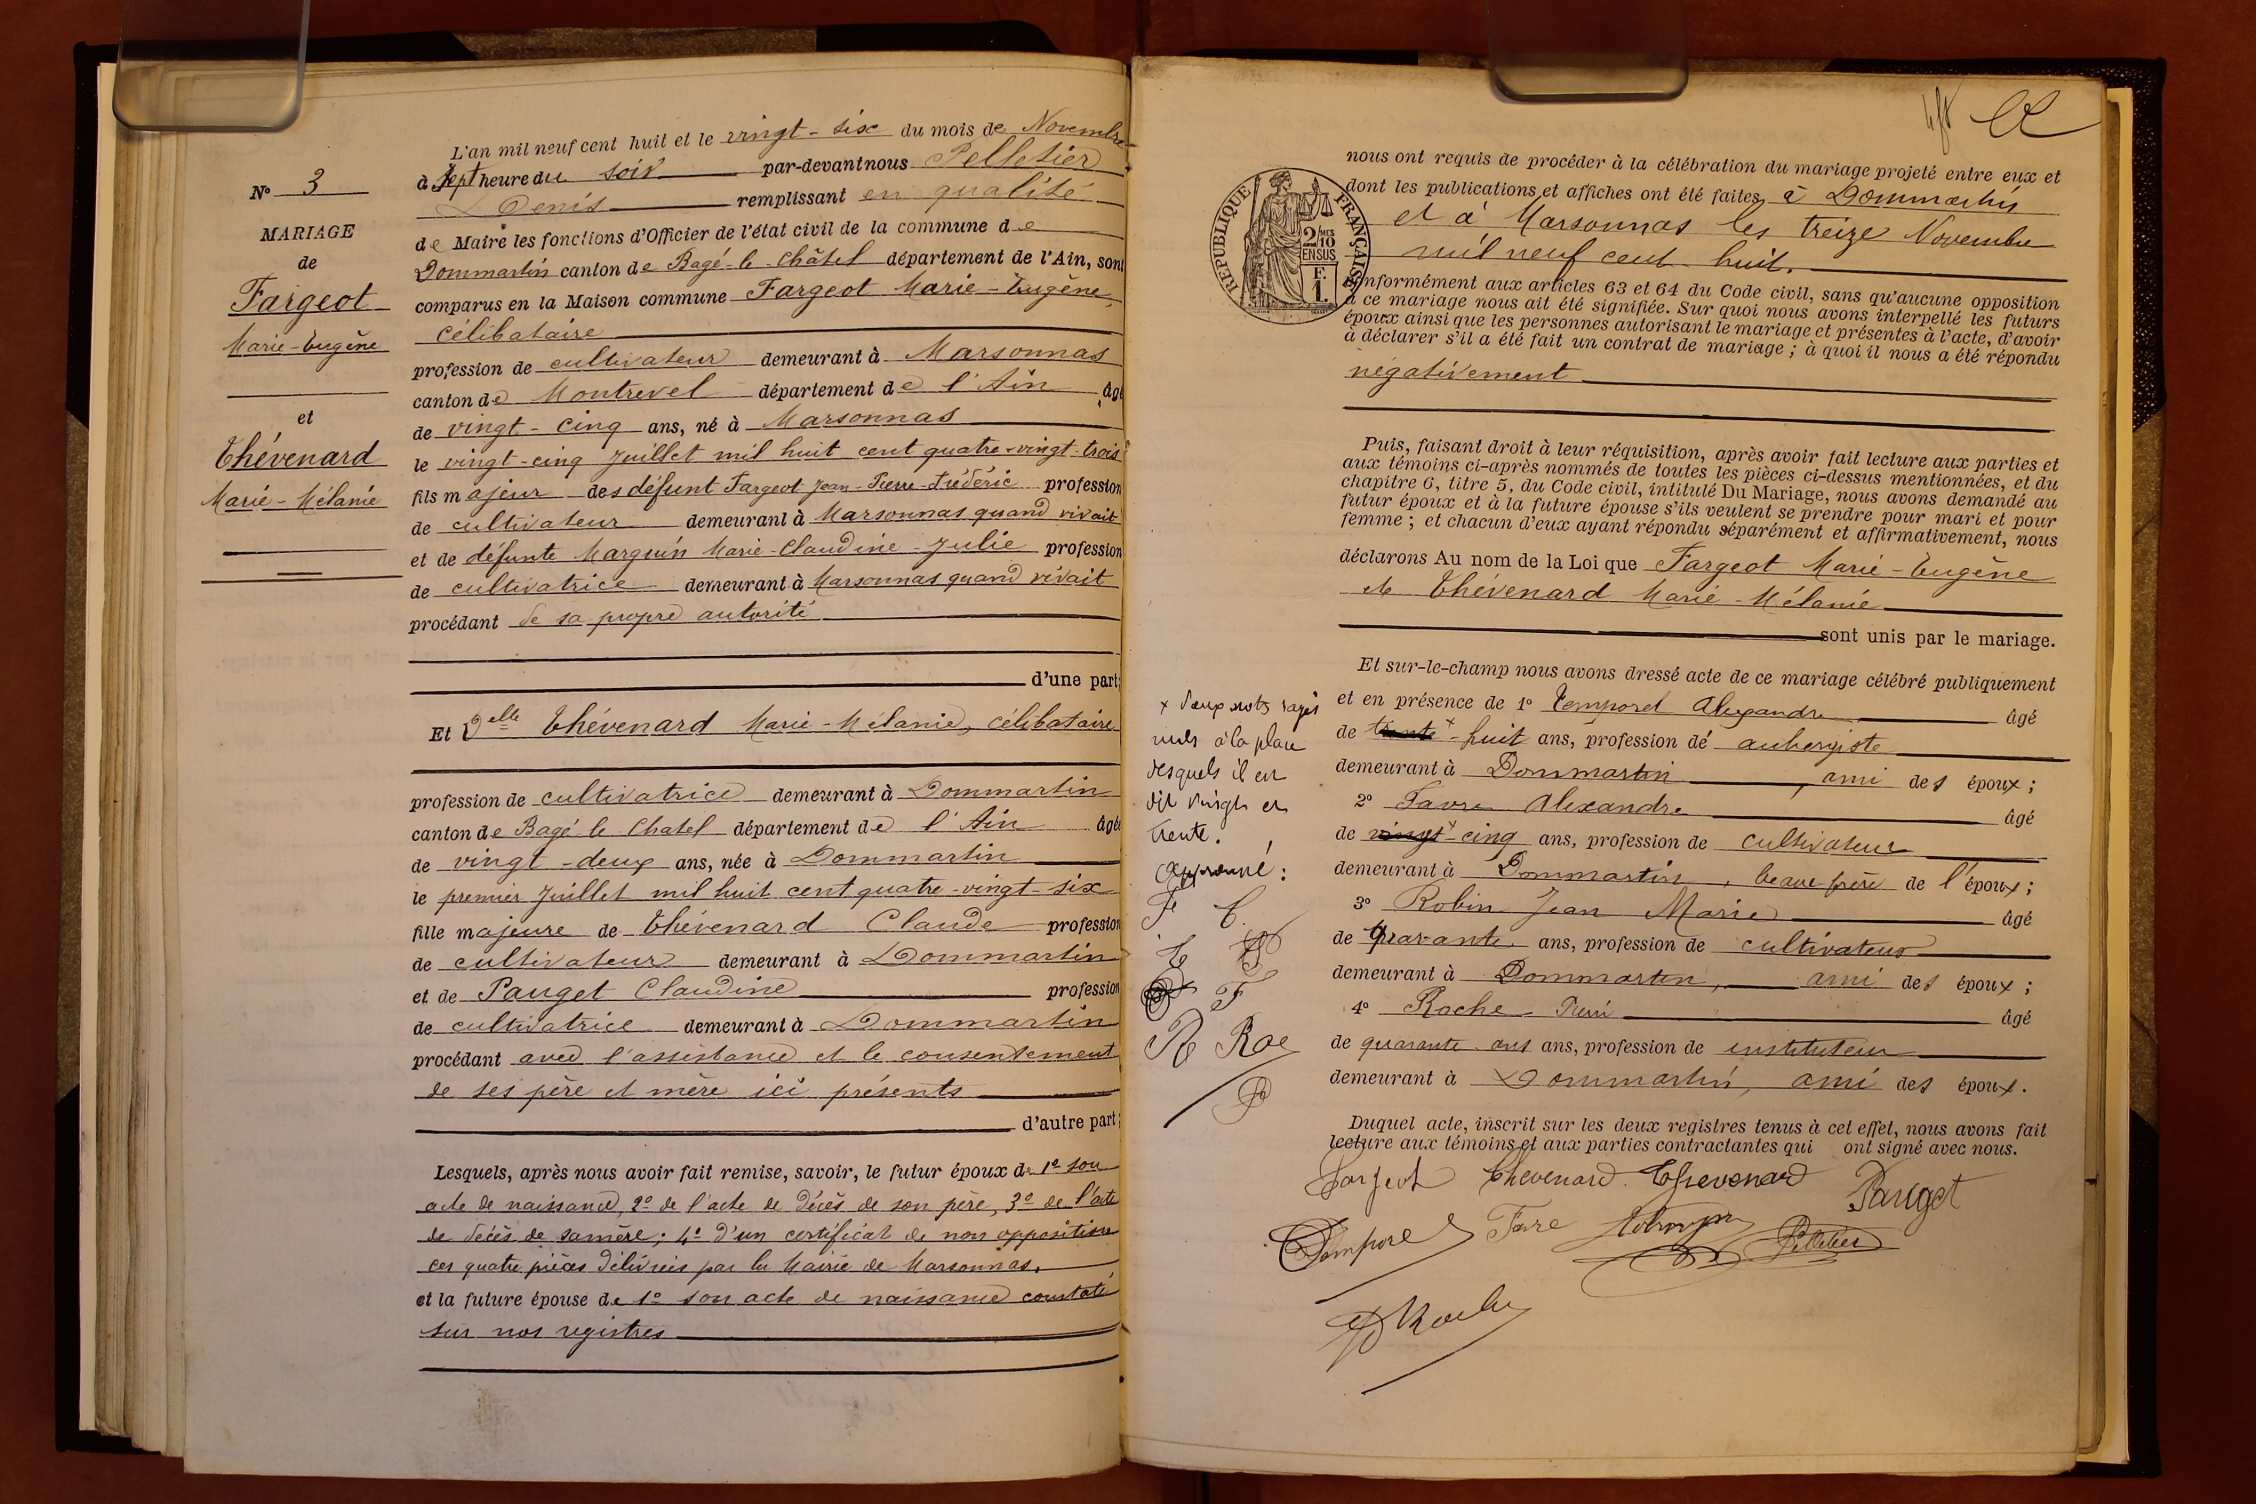 N° 3
MARIAGE
de
Fargeot
Marie-Eugène
et
Thévenard
Marie-Mélanie
L'an mil neuf cent huit et le vingt-six du mois de Novembre
à sept heure du soir par-devant nous Pelletier
Denis remplissant en qualité
de Maire les fonctions d'Officier de l'état civil de la commune de
Dommartin canton de Bagé-le-Châtel département de l'Ain, sont
comparus en la Maison commune Fargeot Marie-Eugène,
célibataire
profession de cultivateur demeurant à Marsonnas
canton de Montrevel département de l'Ain âgé
de vingt-cinq ans, né à Marsonnas
le vingt-cinq Juillet mil huit cent quatre-vingt-trois
fils majeur des défunt Fargeot Jean-Pierre-Frédéric profession
de cultivateur demeurant à Marsonnas quand vivait
et de défunte Marguin Marie-Claudine-Julie profession
de cultivatrice demeurant à Marsonnas quand vivait
procédant de sa propre autorité
d'une part;
Et Delle Thévenard Marie-Mélanie, célibataire
profession de cultivatrice demeurant à Dommartin
canton de Bagé le Chatel département de l'Ain âgée
de vingt-deux ans, née à Dommartin
le premier Juillet mil huit cent quatre-vingt-six
fille majeure de Thévenard Claude profession
de cultivateur demeurant à Dommartin
et de Pauget Claudine profession
de cultivatrice demeurant à Dommartin
procédant avec l'assistance et le consentement
de ses père et mère ici présents
d'autre part;
Lesquels, après nous avoir fait remise, savoir, le futur époux de 1° son
acte de naissance, 2° de l'acte de décès de son père, 3° de l'acte
de décès de sa mère; 4° d'un certificat de non opposition
ces quatre pièces délivrées par la Mairie de Marsonnas,
et la future épouse de 1° son acte de naissance constaté
sur nos registres
RÉPUBLIQUE FRANÇAISE
2/10 EN SUS
F. 1.
nous ont requis de procéder à la célébration du mariage projeté entre eux et
dont les publications et affiches ont été faites, à Dommartin
et à Marsonnas les treize Novembre
mil neuf cent huit.
conformément aux articles 63 et 64 du Code civil, sans qu'aucune opposition
à ce mariage nous ait été signifiée. Sur quoi nous avons interpellé les futurs
époux ainsi que les personnes autorisant le mariage et présentes à l'acte, d'avoir
à déclarer s'il a été fait un contrat de mariage; à quoi il nous a été répondu
négativement
Puis, faisant droit à leur réquisition, après avoir fait lecture aux parties et
aux témoins ci-après nommés de toutes les pièces ci-dessus mentionnées, et du
chapitre 6, titre 5, du Code civil, intitulé Du Mariage, nous avons demandé au
futur époux et à la future épouse s'ils veulent se prendre pour mari et pour
femme; et chacun d'eux ayant répondu séparément et affirmativement, nous
déclarons Au nom de la Loi que Fargeot Marie-Eugène
et Thévenard Marie-Mélanie
sont unis par le mariage.
Et sur-le-champ nous avons dressé acte de ce mariage célébré publiquement
et en présence de 1° Temporel Alexandre âgé
de trente x-huit ans, profession de aubergiste
demeurant à Dommartin, ami des époux;
2° Favre Alexandre âgé
de vingt x-cinq ans, profession de cultivateur
demeurant à Dommartin, beau frère de l'époux;
3° Robin Jean Marie âgé
de quarante ans, profession de cultivateur
demeurant à Dommartin, ami des époux;
4° Roche Pierre âgé
de quarante ans ans, profession de instituteur
demeurant à Dommartin, ami des époux.
Duquel acte, inscrit sur les deux registres tenus à cet effet, nous avons fait
lecture aux témoins et aux parties contractantes qui ont signé avec nous.
x deux mots rayés
nuls à la place
desquels il est
dit vingt et
trente.
Approuvé:
F C.
T
F
R Roe
Fargeot Thevenard. Thevenard Pauget
Temporel Favre Pelletier
Roche